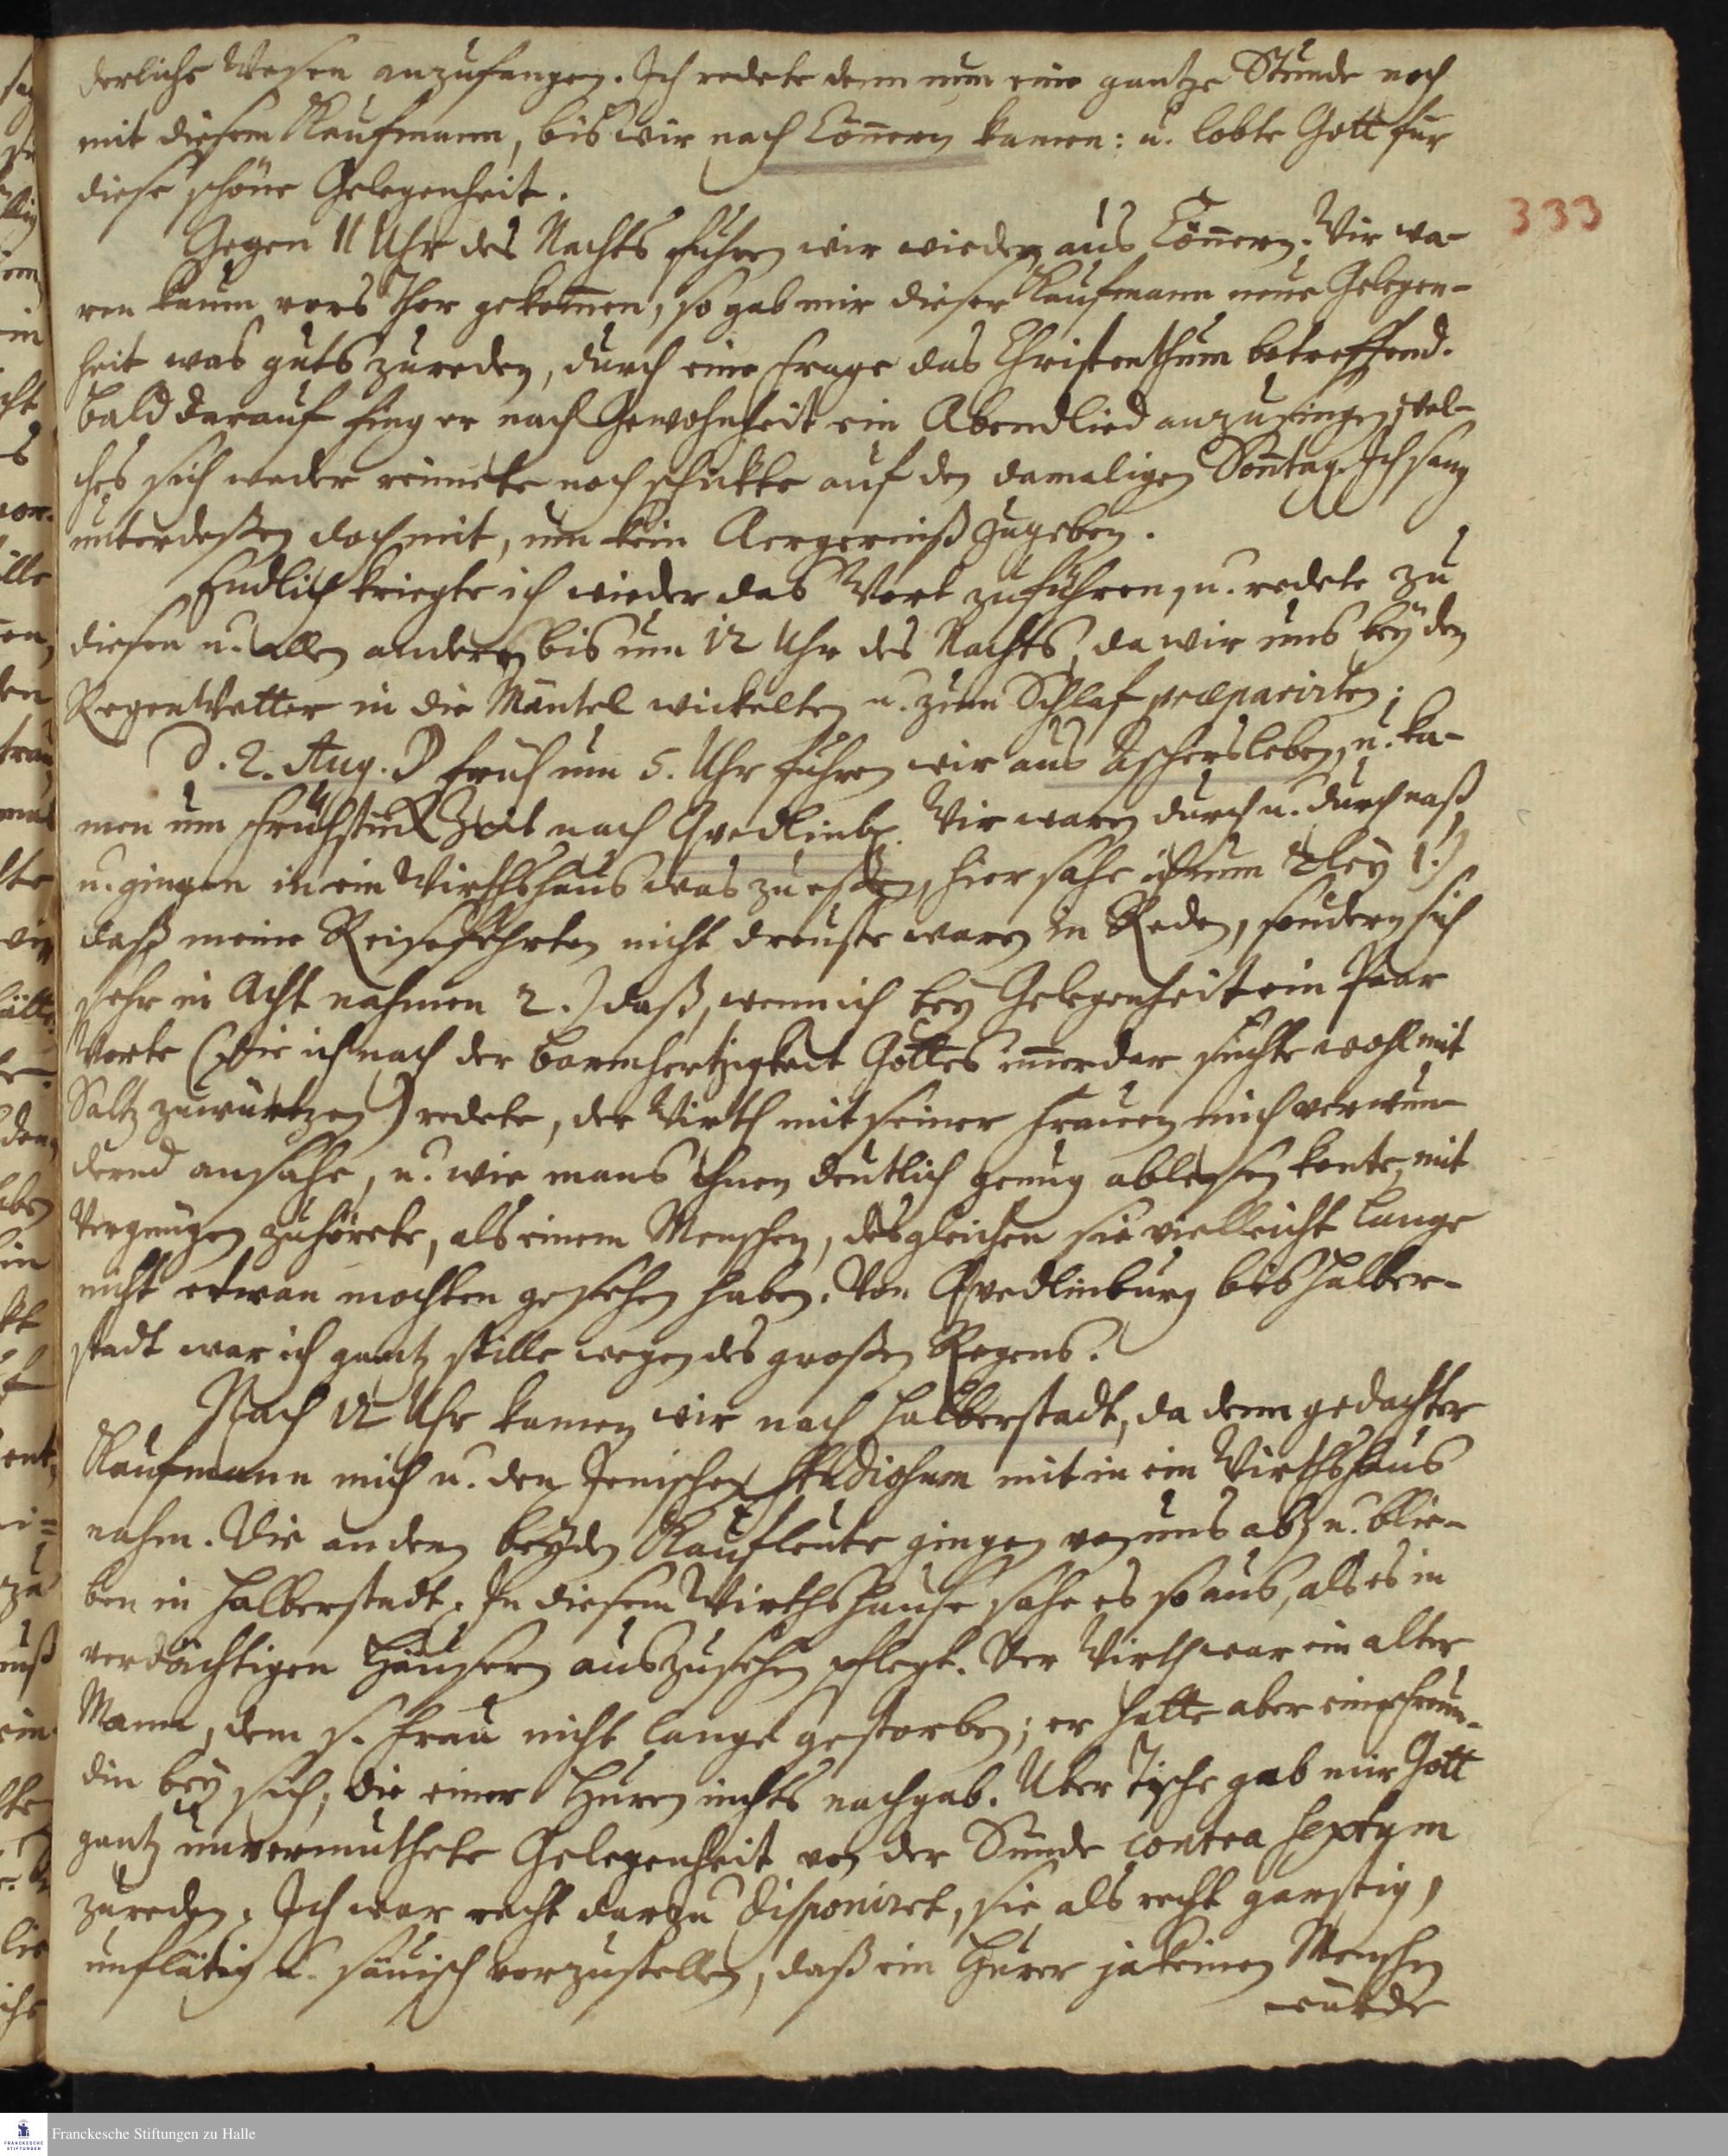 derliches Wesen anzufangen. Ich redete denn nun eine gantze Stunde noch
mit diesem Kaufmann, bis wir nach Cönnern kamen: u. lobte Gott für
diese schöne Gelegenheit.
Gegen 11 Uhr des Nachts fuhren wir wieder aus Cönnern. Wir wa-
333
ren kaum vors Thor gekommen, so gab mir dieser Kaufmann neue Gelegen-
heit was guts zureden, durch eine Frage das Christenthum betreffend.
Bald darauf fing er nach Gewohnheit ein Abendlied anzusingen, wel-
ches sich weder reimete noch schickte auf den damaligen Sontag. Ich sang
unterdeßen doch mit, um kein Aergerniß zugeben.
Endlich kriegte ich wieder das Wort zuführen, u. redete zu
diesen u. allen andern bis um 12 Uhr des Nachts, da wir uns bey dem
RegenWetter in die Mäntel wickelten u. zum Schlaf præparirten;
D. 2. Aug. ☽ früh um 5. Uhr fuhren wir aus Aschersleben, u. ka-
men um Frühstück Zeit nach Qvedlinb. Wir waren durch u. durch naß,
u. gingen in ein Wirthshaus was zu eßen, hier sahe ich nun 2ley 1.)
daß meine Reisefehrten nicht dreuste waren in Reden, sondern sich
sehr in Acht nahmen 2.) daß, wenn ich bey Gelegenheit ein Paar
Worte (die ich nach der Barmhertzigkeit Gottes immerdar suchte wohl mit
Saltz zuwürtzen) redete, der Wirth mit seiner Frauen mich verwun-
dernd ansahe, u. wie mans ihnen deutlich genug ablesen konte, mit
Vergnügen zuhörete, als einem Menschen, desgleichen sie vielleicht lange
nicht etwan mochten gesehen haben. Von Qvedlinburg bis Halber-
stadt war ich gantz stille wegen des großen Regens.
Nach 12 Uhr kamen wir nach Halberstadt, da denn gedachter
Kaufmann mich u. den Jenischen Studiosum mit in ein Wirthshaus
nahm. Die andern beyden Kaufleute gingen von uns ab, u. blie-
ben in Halberstadt. In diesem Wirthshause sahe es so aus, als es in
verdächtigen Häusern auszusehen pflegt. Der Wirth war ein alter
Mann, dem s. Frau nicht lange gestorben; er hatte aber eine Freun-
din bey sich, die einer Huren nichts nachgab. Uber Tische gab mir Gott
gantz unvermuthete Gelegenheit von der Sünde contra Sextum
zureden. Ich war recht darzu disponiret, sie als recht garstig,
unflätig u. säuisch vorzustellen, daß ein Hurer ja keinen Menschen
würde
Franckesche Stiftungen zu Halle